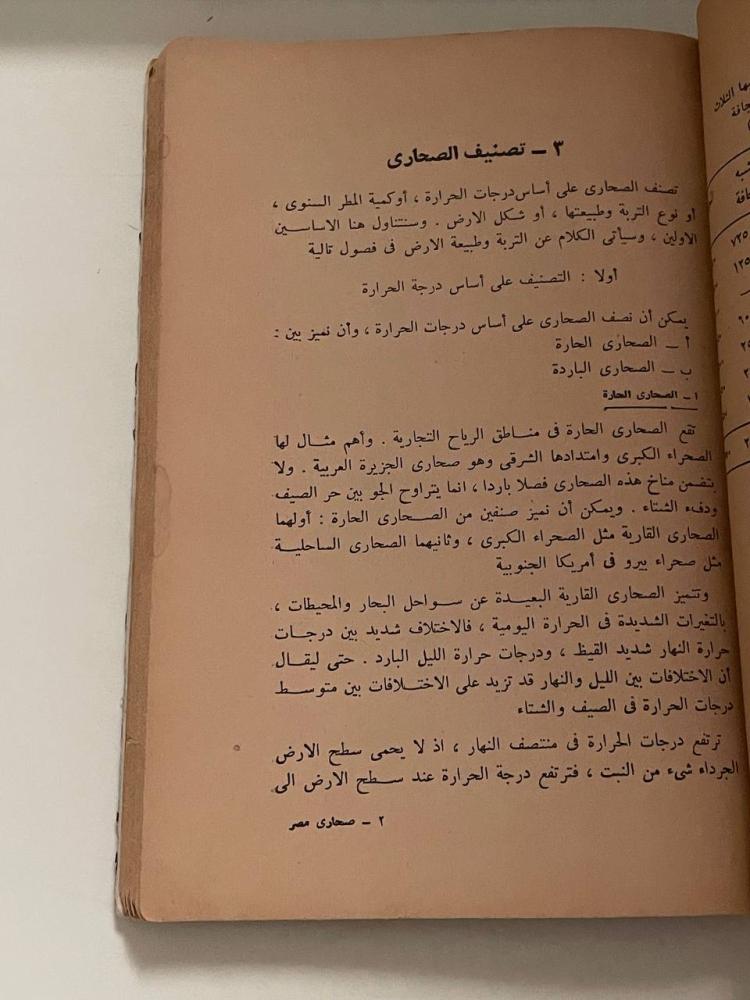 ٣ ــ تصنيف الصحارى
تصنف الصحارى على أساس درجات الحرارة ، أو كمية المطر السنوى ،
أو نوع التربة وطبيعتها ، أو شكل الارض . وسنتناول هنا الاساسين
الاولين ، وسيأتى الكلام عن التربة وطبيعة الارض فى فصول تالية
أولا : التصنيف على أساس درجة الحرارة
يمكن أن نصف الصحارى على أساس درجات الحرارة ، وأن نميز بين :
أ ــ الصحارى الحارة
ب ــ الصحارى الباردة
١ ــ الصحارى الحارة
تقع الصحارى الحارة فى مناطق الرياح التجارية . وأهم مثال لها
الصحراء الكبرى وامتدادها الشرقى وهو صحارى الجزيرة العربية . ولا
يتضمن مناخ هذه الصحارى فصلا باردا ، انما يتراوح الجو بين حر الصيف
ودفء الشتاء . ويمكن أن نميز صنفين من الصحارى الحارة : أولهما
الصحارى القارية مثل الصحراء الكبرى ، وثانيهما الصحارى الساحلية
مثل صحراء بيرو فى أمريكا الجنوبية
وتتميز الصحارى القارية البعيدة عن سواحل البحار والمحيطات ،
بالتغيرات الشديدة فى الحرارة اليومية ، فالاختلاف شديد بين درجات
حرارة النهار شديد القيظ ، ودرجات حرارة الليل البارد . حتى ليقال
أن الاختلافات بين الليل والنهار قد تزيد على الاختلافات بين متوسط
درجات الحرارة فى الصيف والشتاء
ترتفع درجات الحرارة فى منتصف النهار ، اذ لا يحمى سطح الارض
الجرداء شىء من النبت ، فترتفع درجة الحرارة عند سطح الارض الى
٢ ــ صحارى مصر
الثلاث
٧٣٥
١٢٥